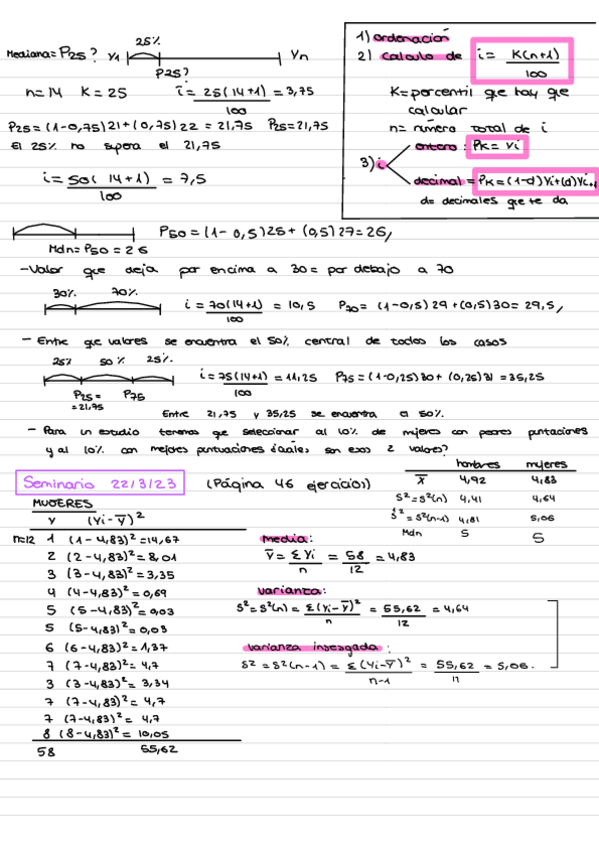 25%
Mediana = P25? y1 yn
P25?
n=14 K=25 i = 25(14+1) = 3,75
100
P25 = (1-0,75)21+(0,75)22 = 21,75 P25=21,75
El 25% no supera el 21,75
i = 50(14+1) = 7,5
100
1) ordenación
2) calculo de i = K(n+1)
100
K=porcentil que hay que
calcular
n= número total de i
entero: PK = Yi
3) i
decimal = PK=(1-d)Yi+(d)Yi+1
d= decimales que te da
P50 = (1-0,5)25 + (0,5)27=26,
Mdn= P50 = 26
-Valor que deja por encima a 30 = por debajo a 70
30% 70%
i = 70(14+1) = 10,5 P70 = (1-0,5)29+(0,5)30= 29,5,
100
- Entre que valores se encuentra el 50% central de todos los casos
25% 50% 25%.
i = 75(14+1) = 11,25 P75 = (1-0,25)30 + (0,25)31 = 35,25
100
P25 = P75
= 21,75
Entre 21,75 y 35,25 se encuentra el 50%.
- Para un estudio tenemos que seleccionar al 10% de mujeres con peores puntaciones
y al 10% con mejores puntuaciones ¿cuáles son esos 2 valores?
Seminario 22/3/23 (Página 46 ejercicios)
hombres mujeres
X̄ 4,92 4,83
S²=S²(n) 4,41 4,64
Ŝ²=S²(n-1) 4,81 5,06
Mdn 5 5
MUJERES
Y (Yi-Ȳ)²
n=12 1 (1-4,83)²=14,67
2 (2-4,83)²= 8,01
3 (3-4,83)²= 3,35
4 (4-4,83)²= 0,69
5 (5-4,83)²= 0,03
5 (5-4,83)²= 0,03
6 (6-4,83)²= 1,37
7 (7-4,83)²= 4,7
3 (3-4,83)²= 3,34
7 (7-4,83)²= 4,7
7 (7-4,83)²= 4,7
8 (8-4,83)²= 10,05
58 55,62
media:
Ȳ = ΣYi = 58 = 4,83
n 12
varianza:
S²=S²(n) = Σ(Yi-Ȳ)² = 55,62 = 4,64
n 12
varianza insesgada:
S² = S²(n-1) = Σ(Yi-Ȳ)² = 55,62 = 5,06.
n-1 11